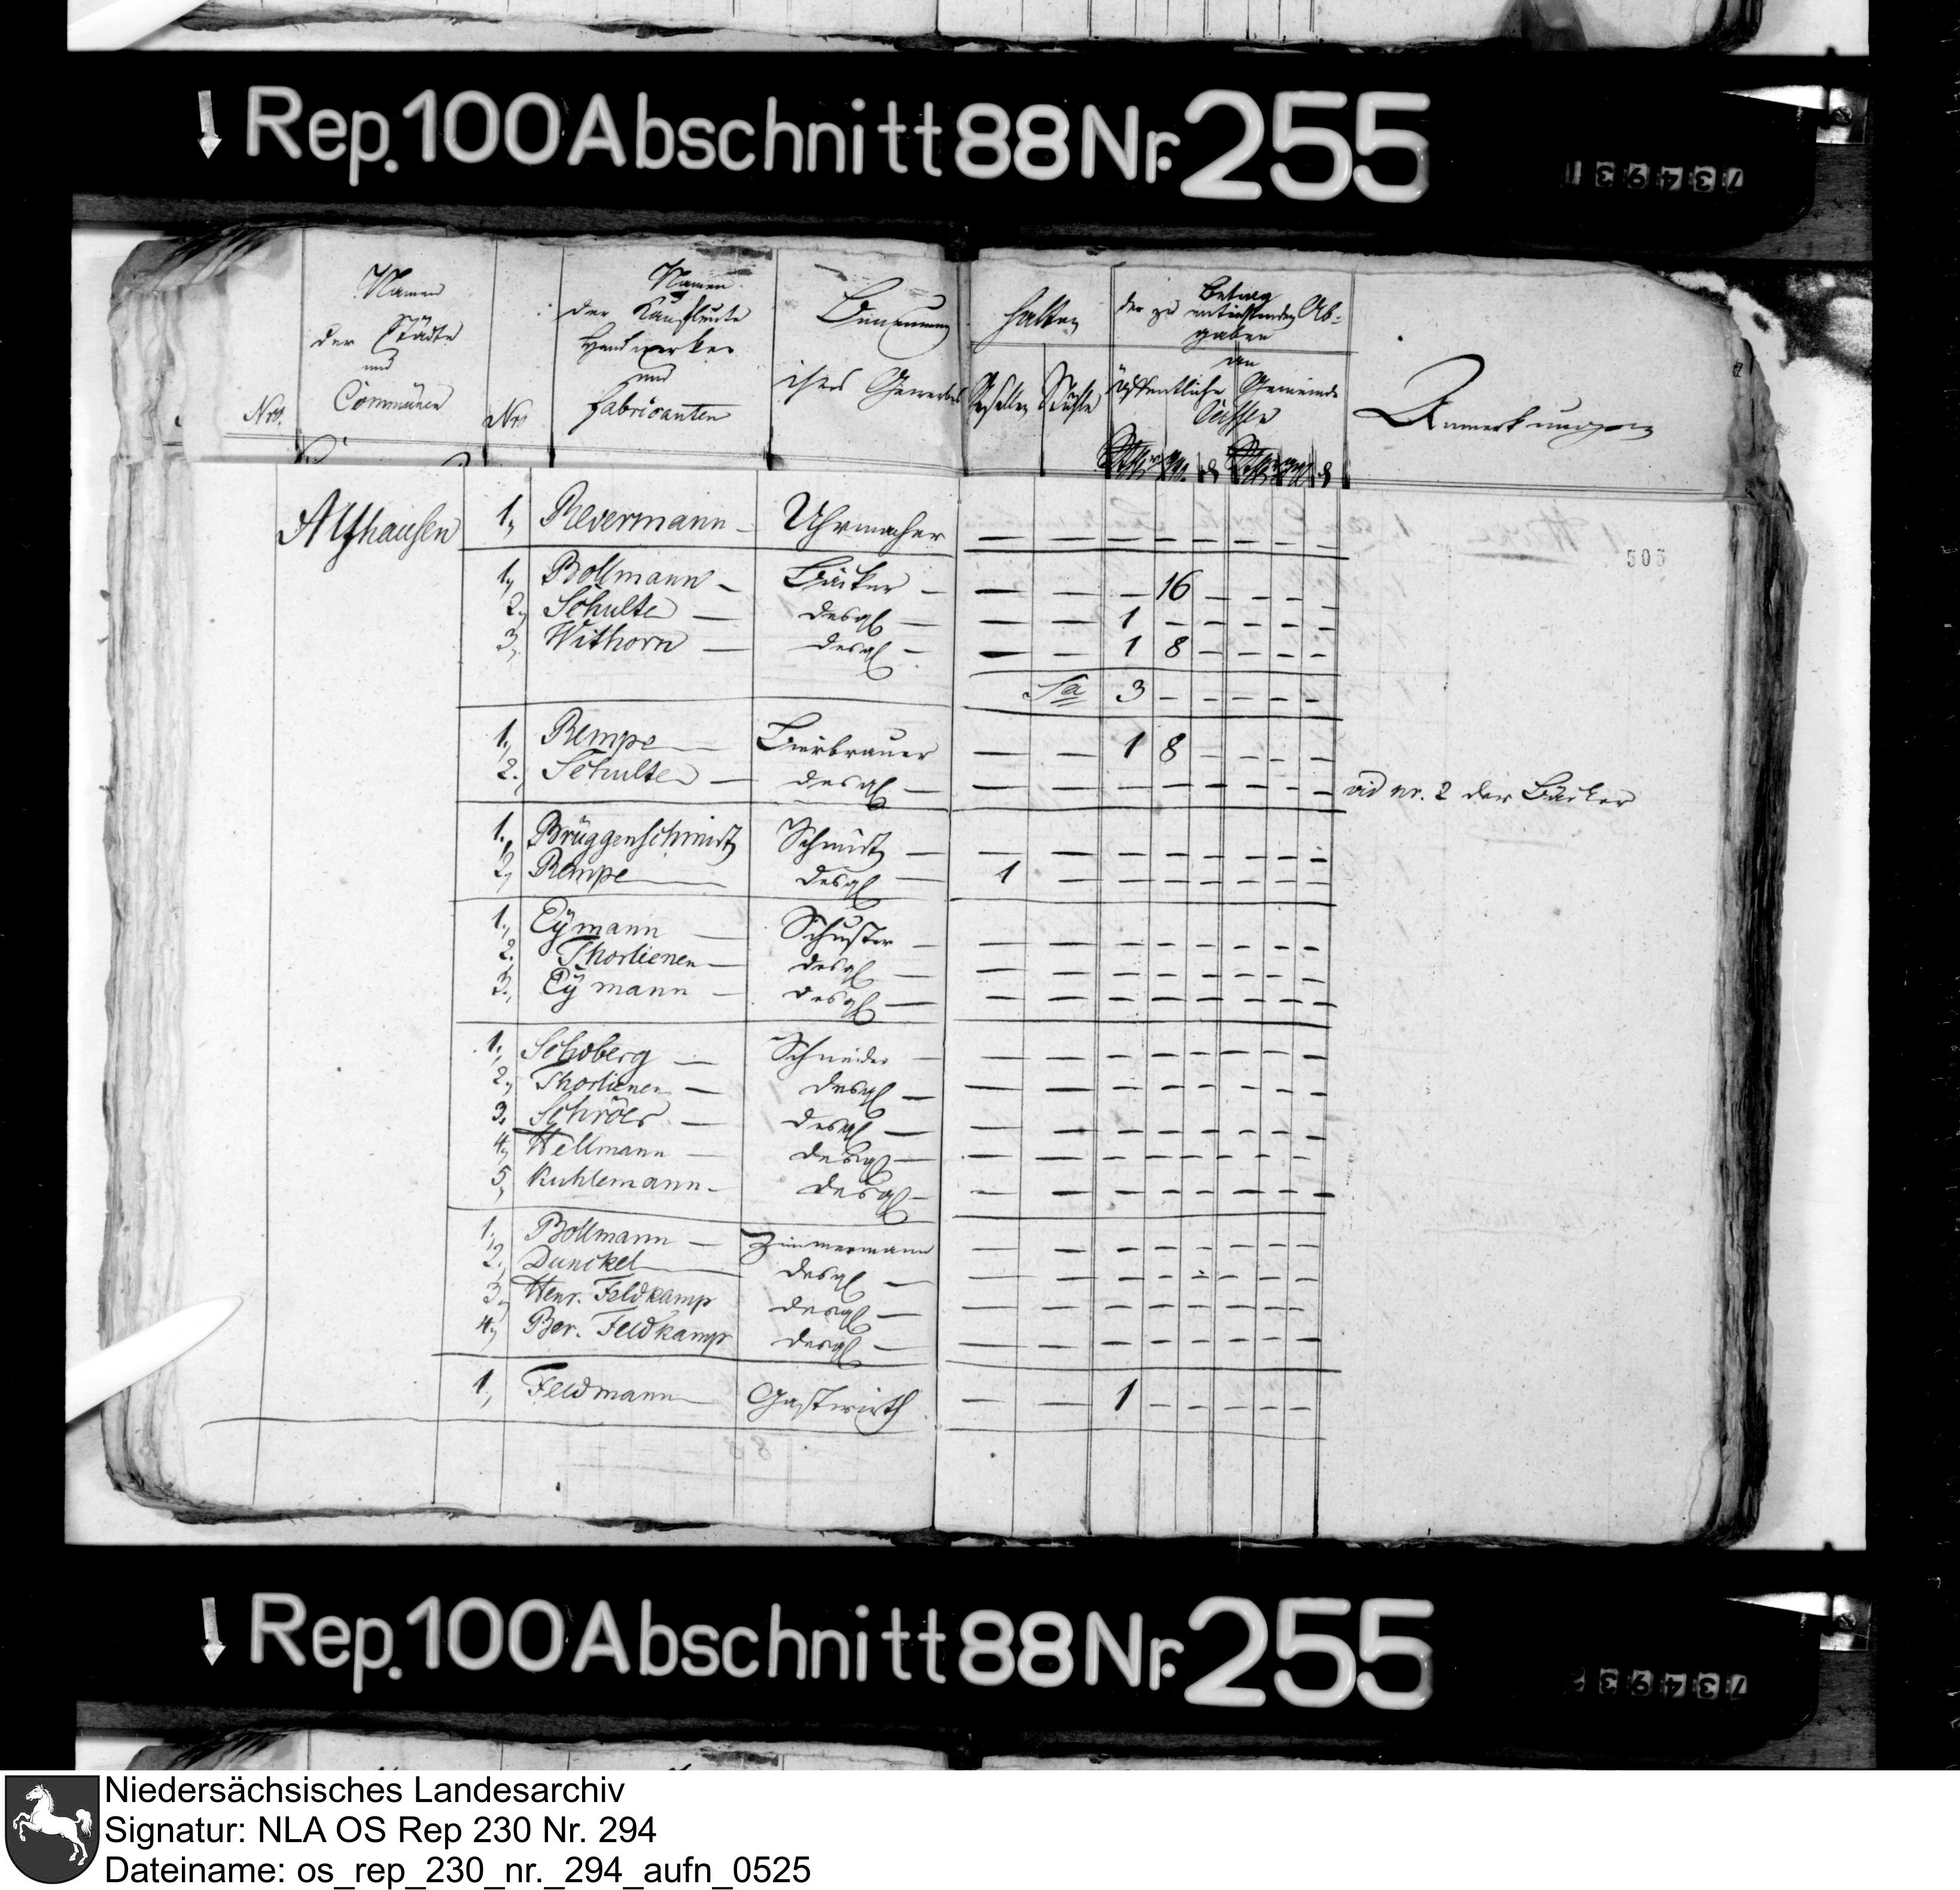 Rep. 100 Abschnitt 88 Nr. 255
734931
Nro.
Namen
der Städte
und
Communen
Nro
Namen
der Kaufleute
Handwerker
und
Fabricanten
Benennung
ihres Gewerbes
halten
Gesellen Stühle
Betrag
der zu entrichtenden Ab-
gaben
an
öffentliche Gemeinde
Casse
Anmerkungen
303
Alfhausen 1, Revermann — Uhrmacher — — — — — — — —
1, Bollmann — Bäcker — — — — 16 — — — —
2, Schulte — desgl — — — 1 — — — — —
3, Withorn — desgl — — — 1 8 — — — —
Sa 3 — — — — —
1, Rempe — Bierbrauer — — 1 8 — — — —
2, Schulte — desgl — — — — — — — — — vid nr. 2 der Bäcker
1, Brüggenschmidt Schmidt — — — — — — — — —
2, Rempe — desgl — 1 — — — — — — —
1, Eÿmann — Schuster — — — — — — — — —
2, Thorlienen — desgl — — — — — — — — —
3, Eÿmann — desgl — — — — — — — — —
1, Schoberg — Schneider — — — — — — — — —
2, Thorlienen — desgl — — — — — — — — —
3, Schröer — desgl — — — — — — — — —
4, Hellmann — desgl — — — — — — — — —
5, Kuhlemann — desgl — — — — — — — — —
1, Bollmann — Zimmermann — — — — — — — —
2, Dunckel — desgl — — — — — — — — —
3, Henr. Feldkamp desgl — — — — — — — — —
4, Ber. Feldkamp desgl — — — — — — — — —
1, Feldmann — Gastwirth — — 1 — — — — —
Rep. 100 Abschnitt 88 Nr. 255
Niedersächsisches Landesarchiv
Signatur: NLA OS Rep 230 Nr. 294
Dateiname: os_rep_230_nr._294_aufn_0525